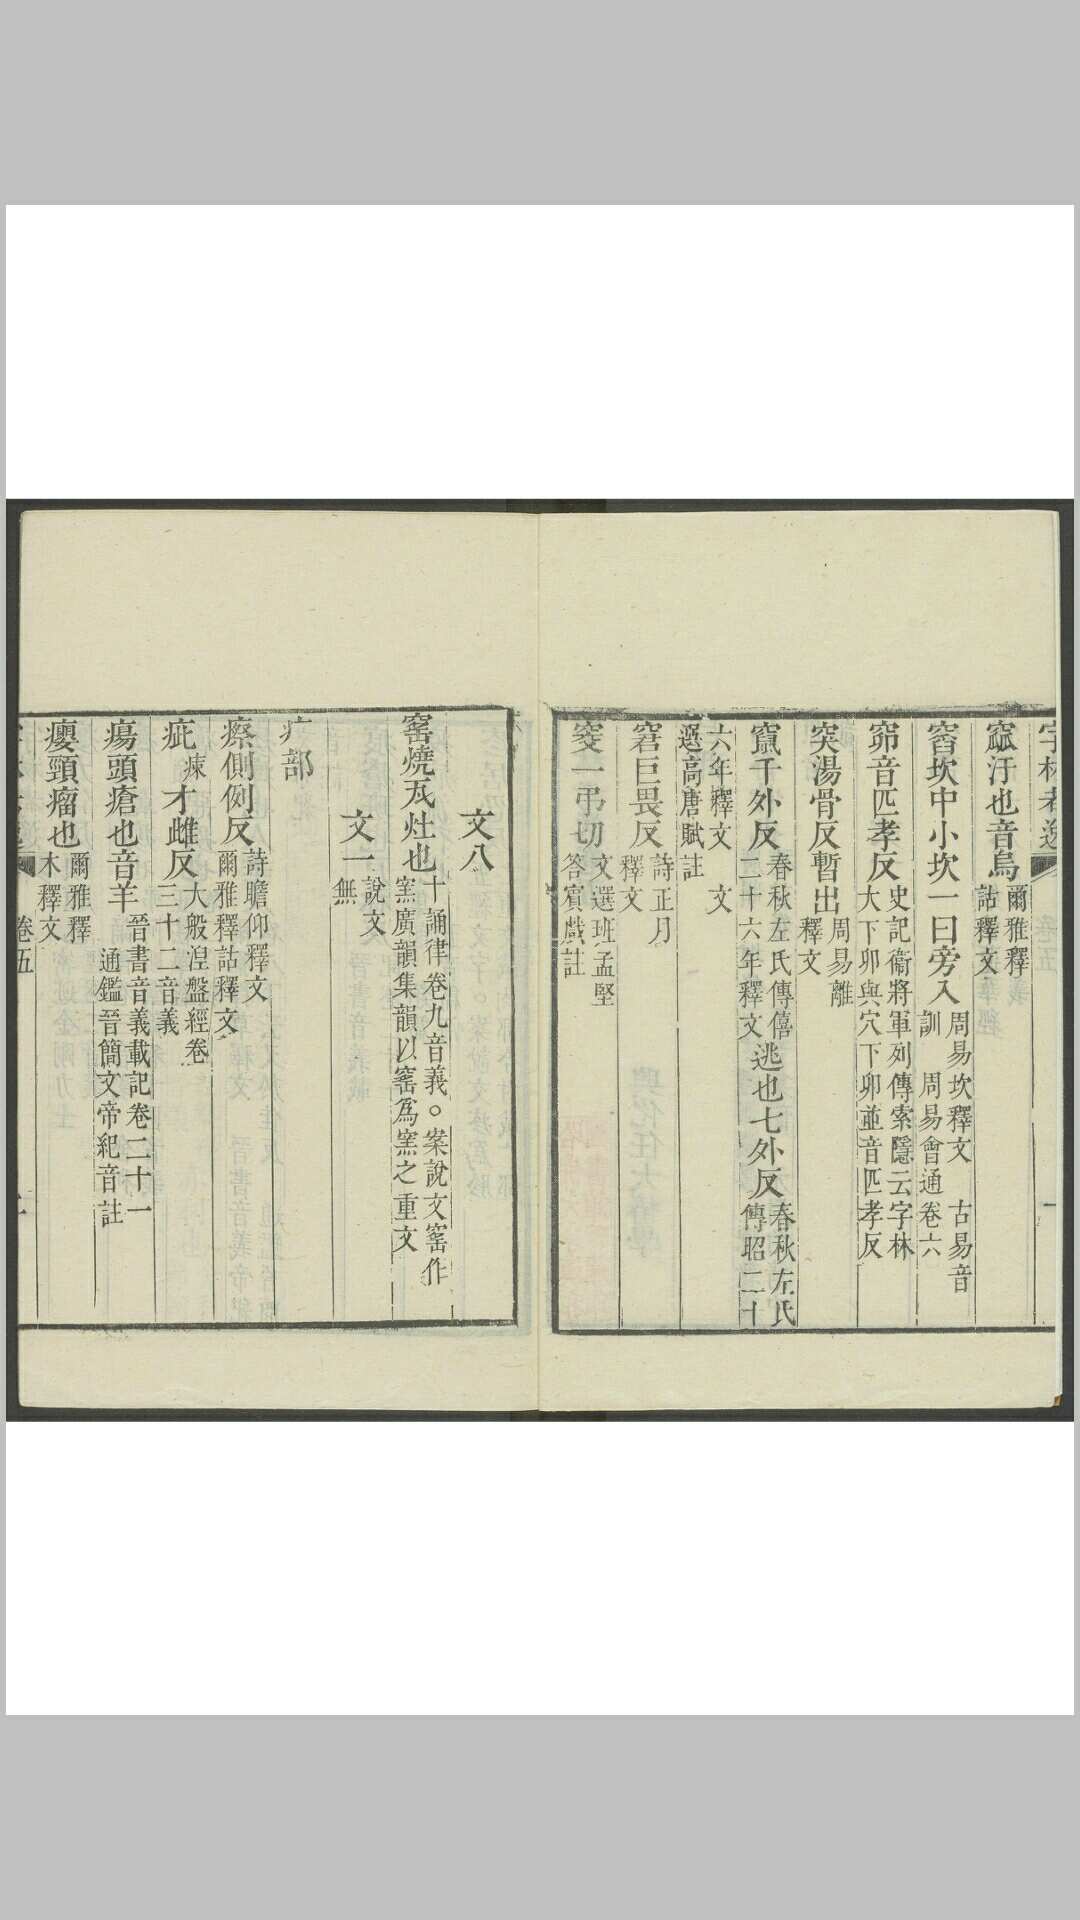 字林考逸
卷五
窳汙也音烏爾雅釋詁釋文
窞坎中小坎一曰旁入周易坎釋文 古易音訓 周易會通卷六
窌音匹孝反史記衞將軍列傳索隱云字林大下卯與穴下卯並音匹孝反
突湯骨反暫出周易離釋文
竄千外反春秋左氏傳僖二十六年釋文逃也七外反春秋左氏傳昭二十
六年釋文 文選高唐賦註
窘巨畏反詩正月釋文
窔一弔切文選班孟堅答賓戲註
文八
窰燒瓦灶也十誦律卷九音義○案說文窰作窯廣韻集韻以窰爲窯之重文
文一說文無
疒部
瘵側例反詩瞻仰釋文 爾雅釋詁釋文
疵瘷才雌反大般涅盤經卷三十二音義
瘍頭瘡也音羊晉書音義載記卷二十一 通鑑晉簡文帝紀音註
癭頸瘤也爾雅釋木釋文
卷五